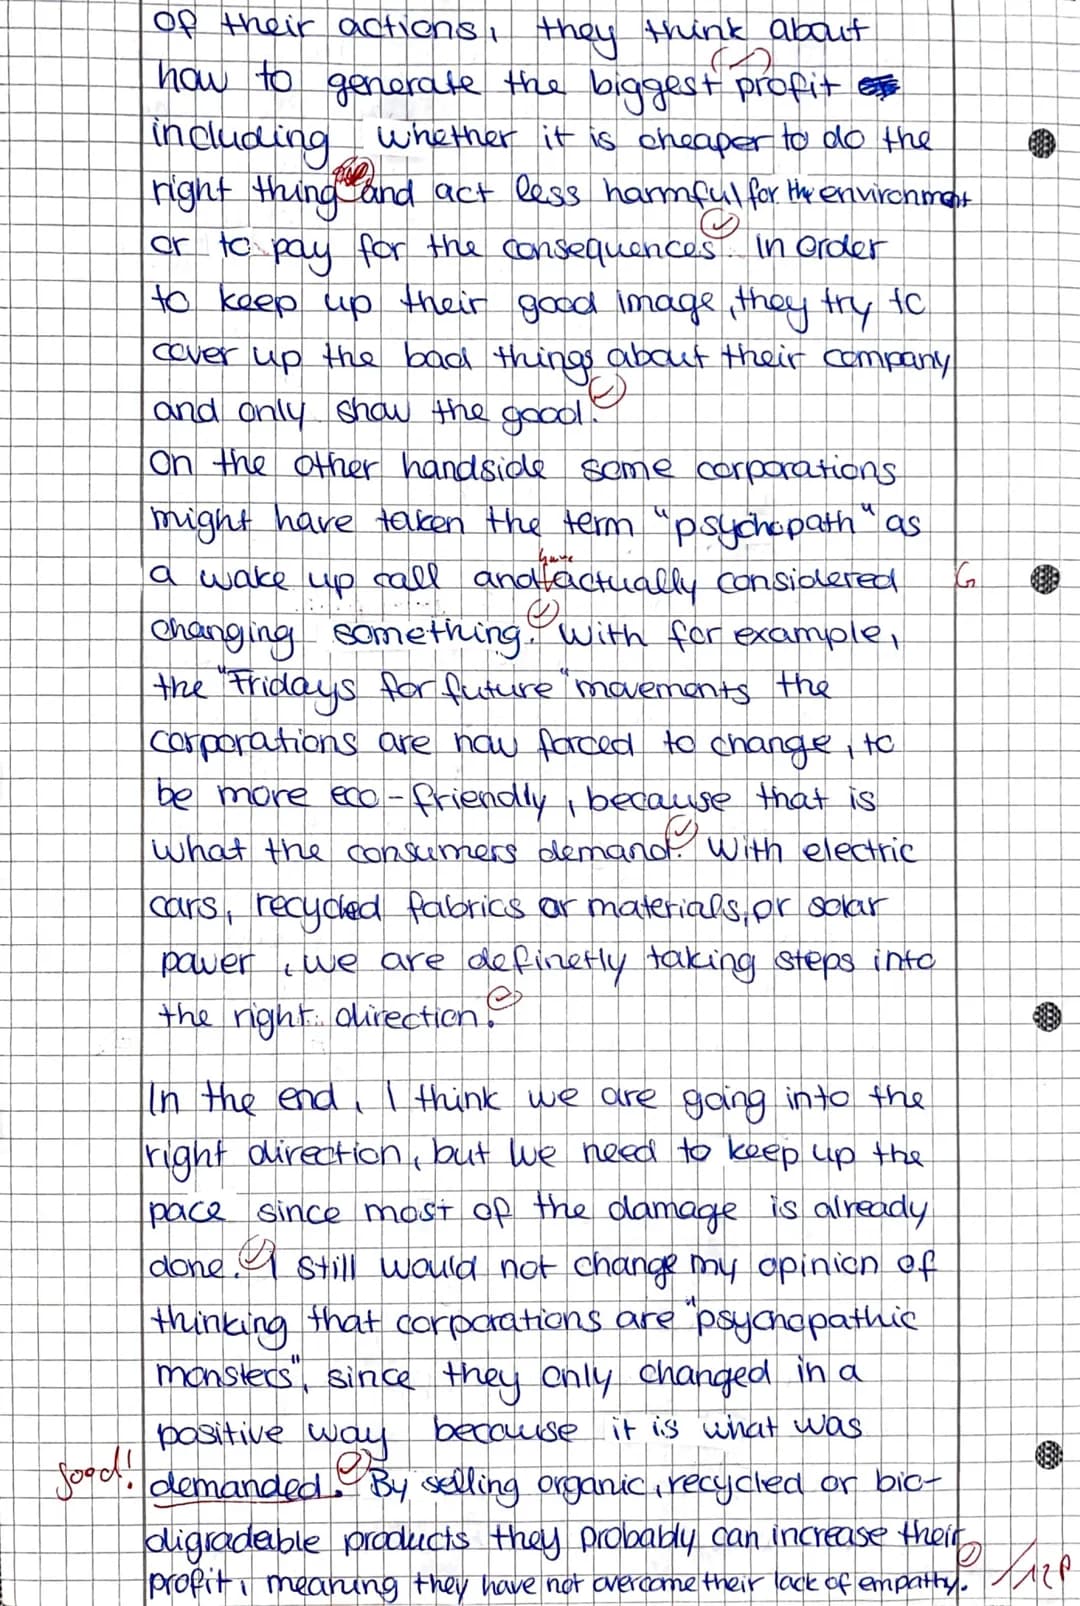 of their actions, they think about
how to generate the biggest profit
including whether it is cheaper to do the
right thing and act less harmful for the environment
or to pay for the consequences. In order
to keep up their good image, they try to
cover up the bad things about their company
and only show the good.
On the other handside some corporations
might have taken the term "psychopath" as
have
a wake up call and actually considered G
changing something. With for example,
the "Fridays for future" movements the
corporations are now forced to change, to
be more eco-friendly, because that is
what the consumers demand. With electric
cars, recycled fabrics or materials, or solar
power, we are definetly taking steps into
the right direction.
In the end, I think we are going into the
right direction, but we need to keep up the
pace since most of the damage is already
done. I still would not change my opinion of
thinking that corporations are "psychopathic
monsters", since they only changed in a
positive way because it is what was
good! demanded. By selling organic, recycled or bio-
digradeable products they probably can increase their
profit, meaning they have not overcome their lack of empathy. /12P